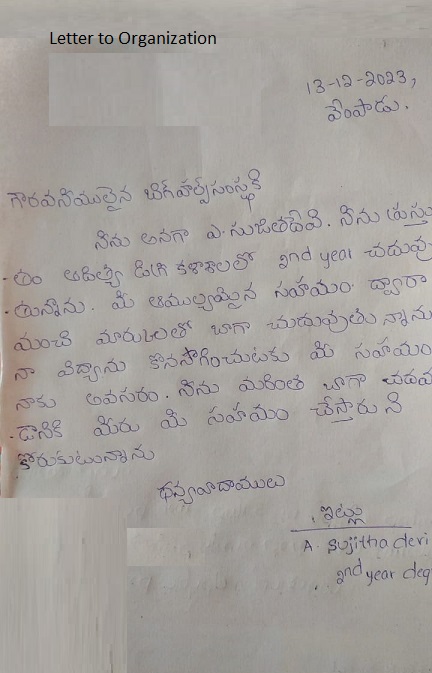 Letter to Organization
13-12-2023,
వేంపాడు.
గౌరవనీయులైన బిగ్‌హెల్ప్ సంస్థకి
నేను అనగా ఎ. సుజితదేవి. నేను ప్రస్తు
తం ఆదిత్య డిగ్రీ కళాశాలలో 2nd year చదువు
తున్నాను. మీ అమూల్యమైన సహాయం ద్వారా
మంచి మారుకులతో బాగా చదువుతున్నాను
నా విద్యాను కొనసాగించుటకు మీ సహాయం
నాకు అవసరం. నేను మరింత బాగా చదవ
డానికి మీరు మీ సహాయం చేస్తారు ని
కోరుకుటున్నాను
ధన్యవాదాములు
ఇట్లు
A. Sujitha devi
2nd year deg